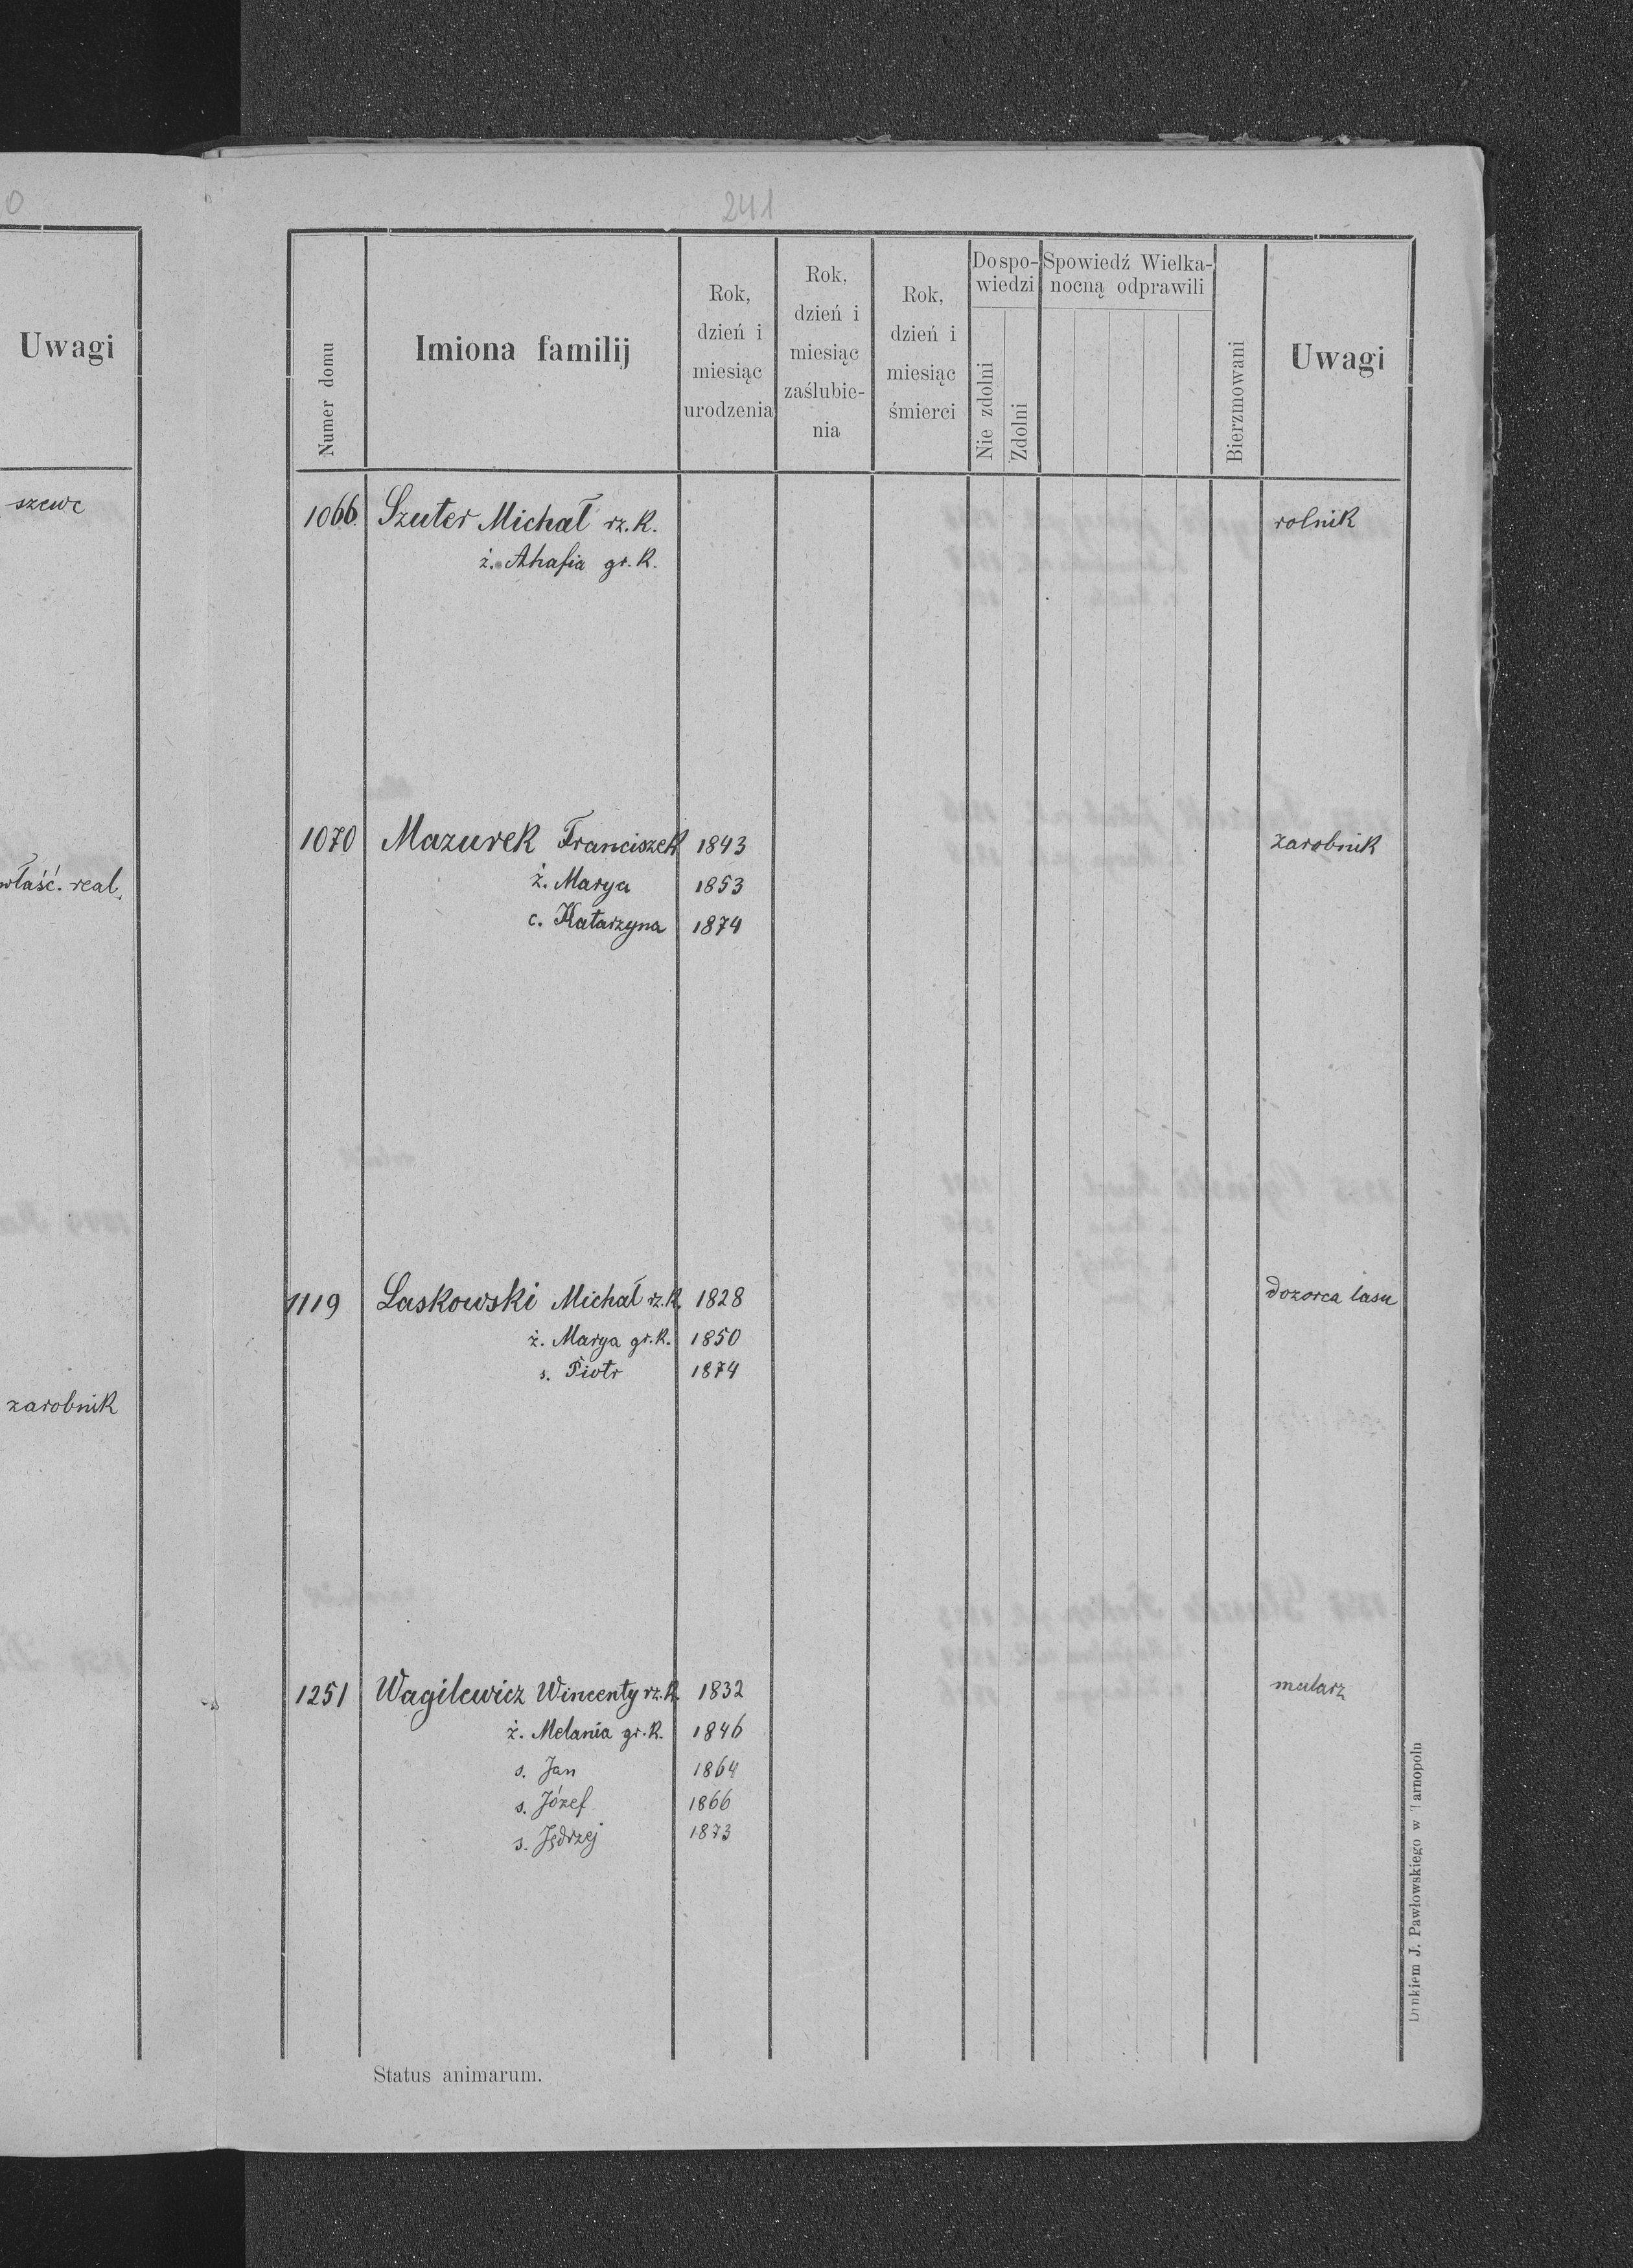 0
Uwagi
szewc
właść. real.
zarobnik
241
Numer domu
Imiona familij
Rok,
dzień i
miesiąc
urodzenia
Rok,
dzień i
miesiąc
zaślubie-
nia
Rok,
dzień i
miesiąc
śmierci
Do spo-
wiedzi
Nie zdolni
Zdolni
Spowiedź Wielka-
nocną odprawili
Bierzmowani
Uwagi
1066. Szuter Michał rz. k. rolnik
ż. Ahafia gr. k.
1070 Mazurek Franciszek 1843 zarobnik
ż. Marya 1853
c. Katarzyna 1874
1119 Laskowski Michał rz. k. 1828 dozorca lasu
ż. Marya gr. k. 1850
s. Piotr 1874
1251 Wagilewicz Wincenty rz. k. 1832 malarz
ż. Melania gr. k. 1846
s. Jan 1864
s. Józef 1866
s. Jędrzej 1873
Status animarum.
Drukiem J. Pawłowskiego w Tarnopolu